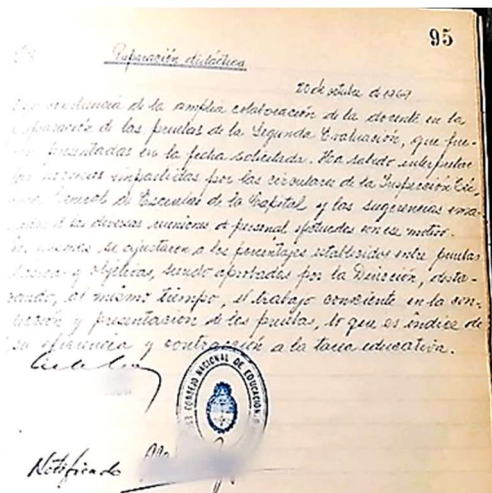 95
Preparación didáctica
20 de octubre de 1969
constancia de la amplia colaboración de la docente en la
preparación de las pruebas de la Segunda Evaluación, que fue-
presentadas en la fecha solicitada. Ha sabido interpretar
las normas impartidas por las circulares de la Inspección Téc-
General de Escuelas de la Capital y las sugerencias
las diversas reuniones de personal efectuadas con ese motivo.
se ajustaron a los porcentajes establecidos entre pruebas
y objetivas, siendo aprobadas por la Dirección, desta-
cando, al mismo tiempo, el trabajo conciente en la con-
fección y presentación de las pruebas, lo que es índice de
su eficiencia y contracción a la tarea educativa.
CONSEJO NACIONAL DE EDUCACION
Notificado